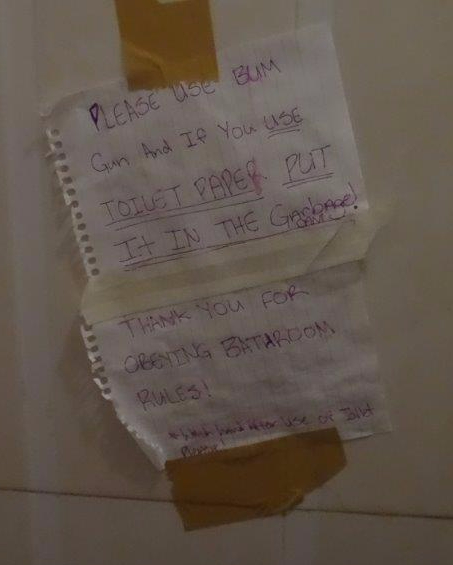 PLEASE USE BUM
Gun And If You USE
TOILET PAPER PUT
It IN THE Garbage!
THANK YOU FOR
OBEYING BATHROOM
RULES!
* Wash hand After use of Toilet
Paper!